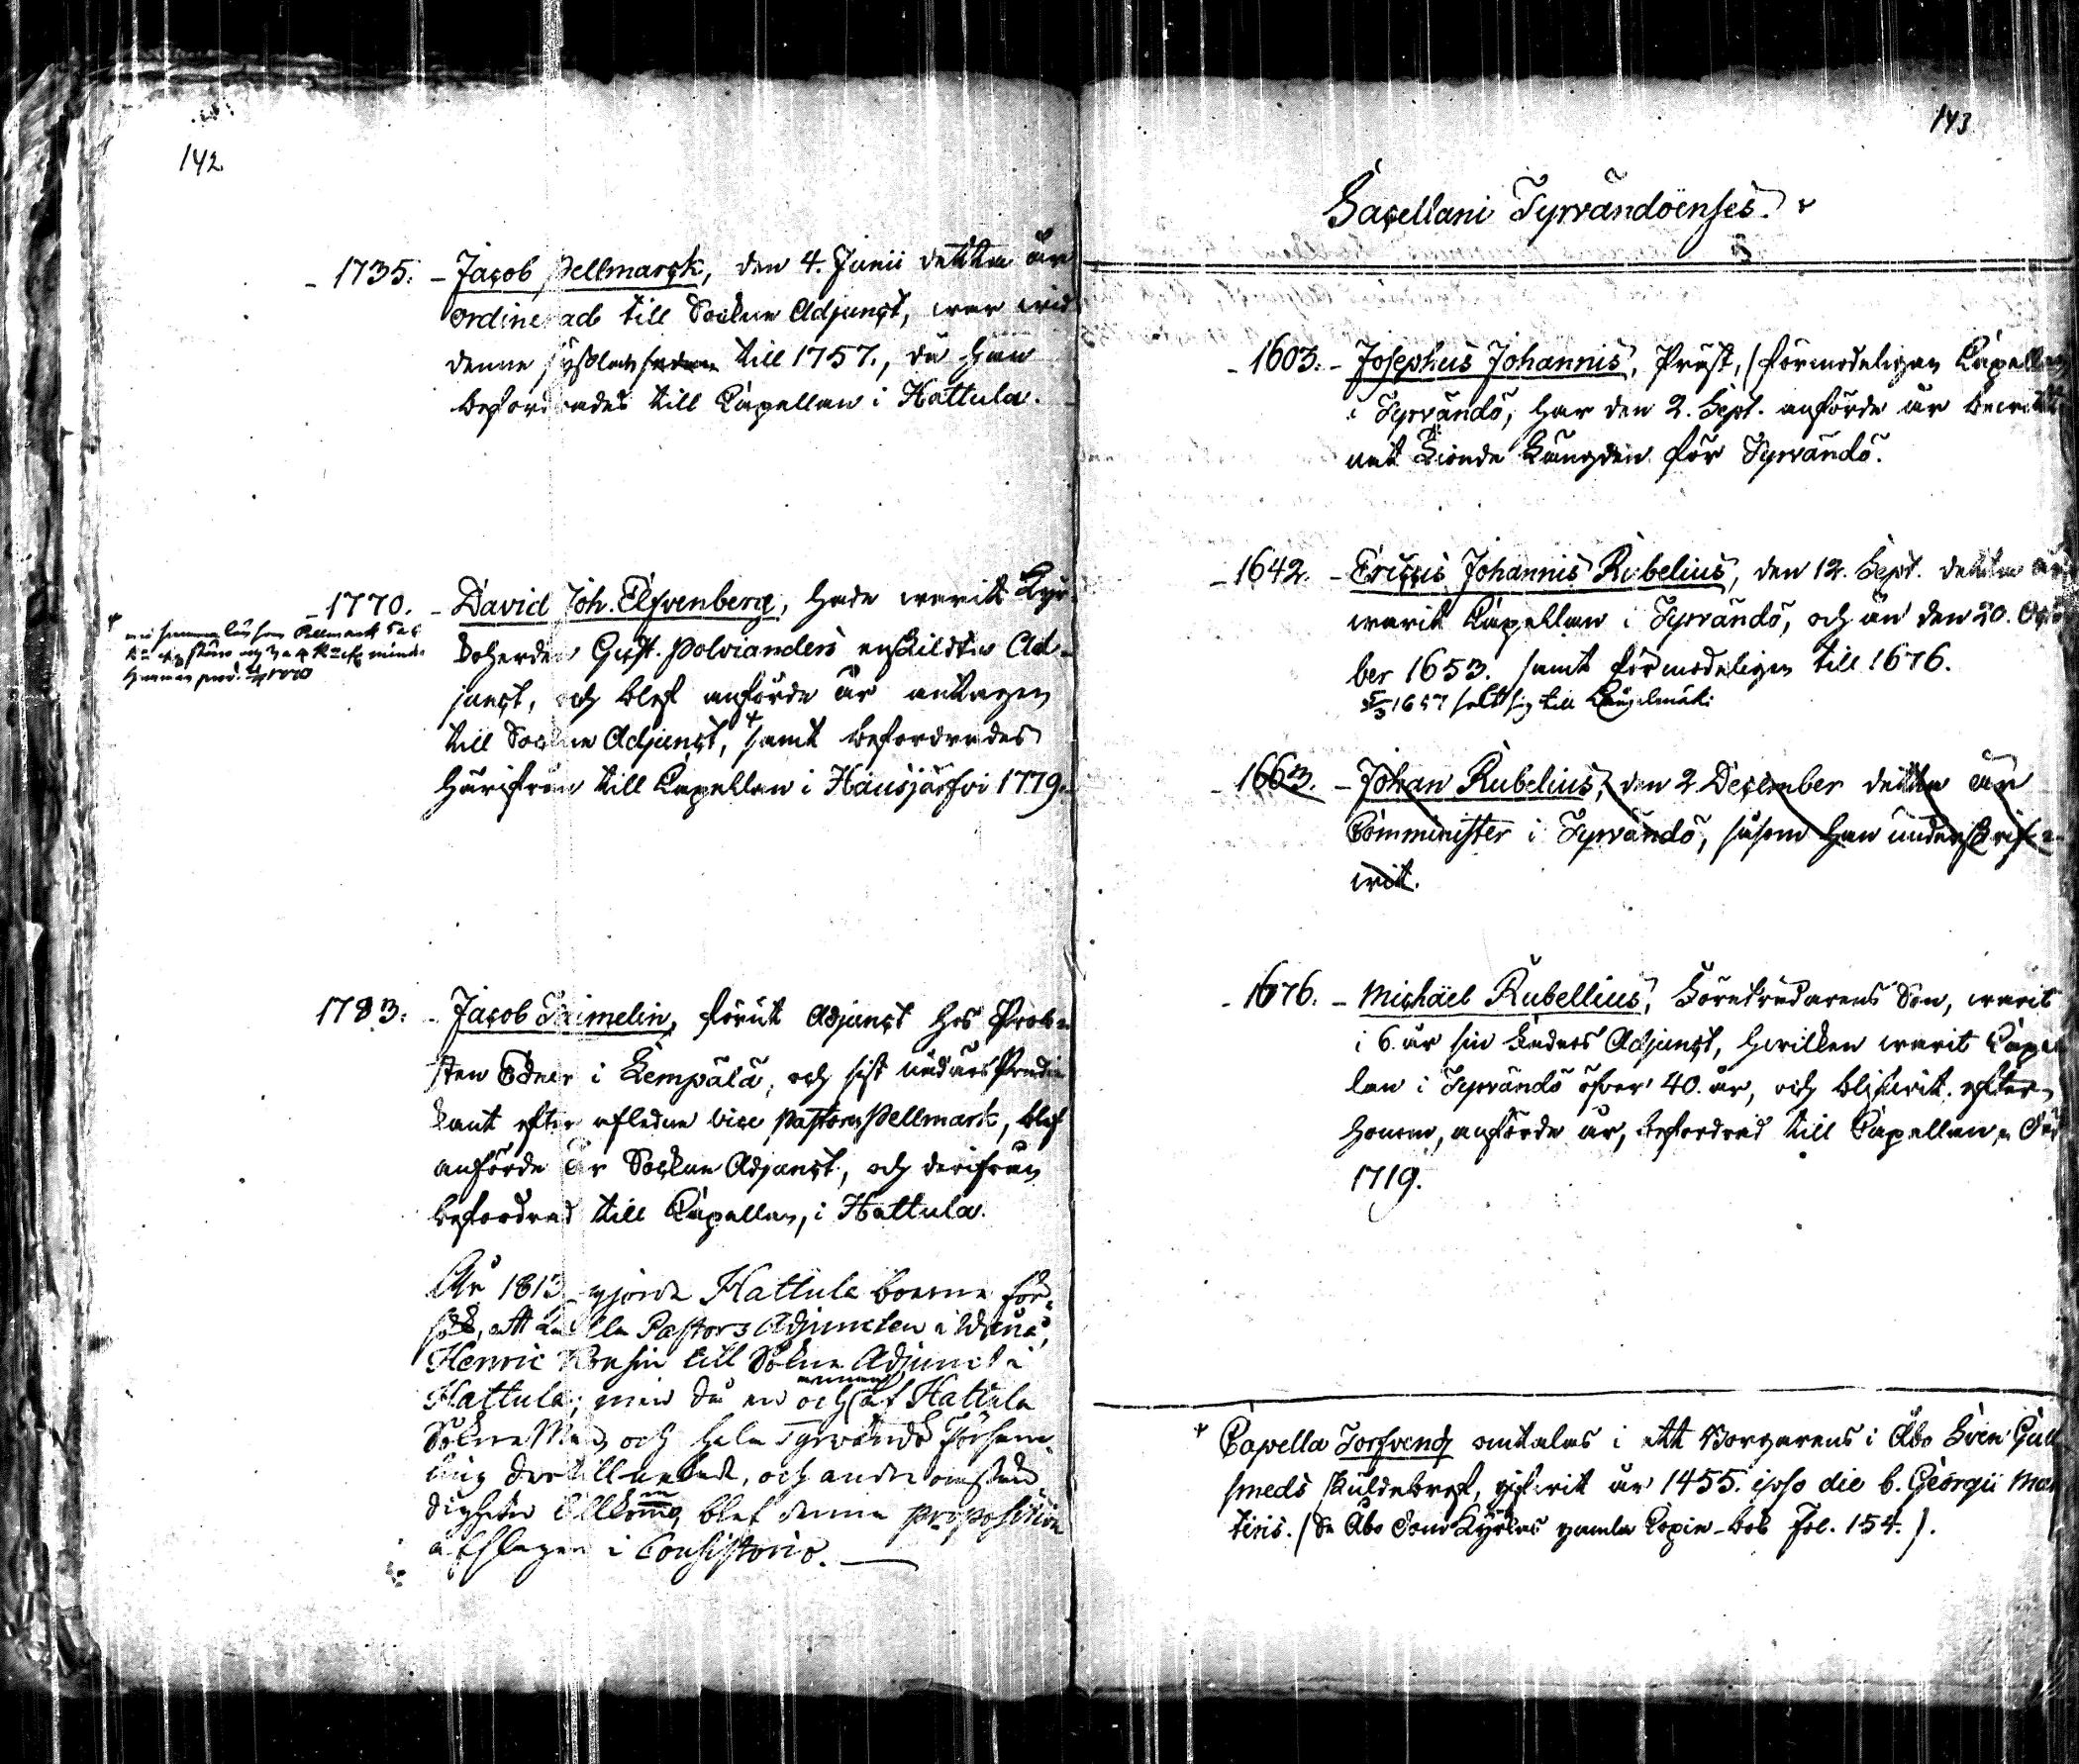 142
- 1735. - Jacob Pellmarck, den 4. Junii detta år
ordinerad till Sockne Adjunct, war wid
denne sysslan till 1757., då han
befordrades till Capellan i Hattula.
- 1770. - David Joh. Elfvenberg, hade warit Kyr-
koherden Gust. Polvianders enskildte Ad-
junct, och blef anförde år antagen
till Sockne Adjunct, + samt befordrades
härifrån till Capellan i Hausjärfvi 1779.
+ samma lön som Pellmarck
1783. - Jacob Taimelin, förut Adjunct hos Prob-
sten Ödner i Lempälä, och sist nådårs Predi-
kant efter aflidne vice Pastorn Pellmark, blef
anförde år Sockne Adjunct, och derifrån
befordrad till Capellan, i Hattula.
År 1813 gjorde Hattula boerne för-
sök, att kalla Pastors Adjuncten i Wånå,
Henric till Sokne Adjunct i
Hattula; men då en och annan af Hattula
Sokne Män och hela Tyrvändö Försam-
ling dertill nekade, och andre omstän-
digheter tillkommo, blef denna proposition
afslagen i Consistorio. —
143
Sacellani Tyrvändöenses. +
- 1603. - Josephus Johannis, Präst, (förmodeligen Capellan
i Tyrvändö, har den 2. Sept. anförde år
Tionde Längden för Tyrvändö.
- 1642. - Ericus Johannis Rubelius, den 12. Sept. detta år
warit Capellan i Tyrvändö, och än den 20. Octo
ber 1653. samt förmodeligen till 1676.
1657 till Längelmäki
- 1663. - Johan Rubelius, den 2 December detta år
Comminister i Tyrvändö, såsom han underskrif-
wit.
- 1676. - Michaël Rubellius, Företrädarens Son, warit
i 6. år sin Faders Adjunct, hwilken warit Capel
lan i Tyrvändö öfver 40. år, och blifwit efter
honom, anförde år, befordrad till Capellan, Död
1719.
+ Capella Torfvenö omtalas i ett Borgarens i Åbo Sven Gull
smeds skuldebref, gifwit år 1455. ipso die b. Georgii Mar
tiris. (Se Åbo Dom Kyrkas gamla Copie-bok Fol. 154.).